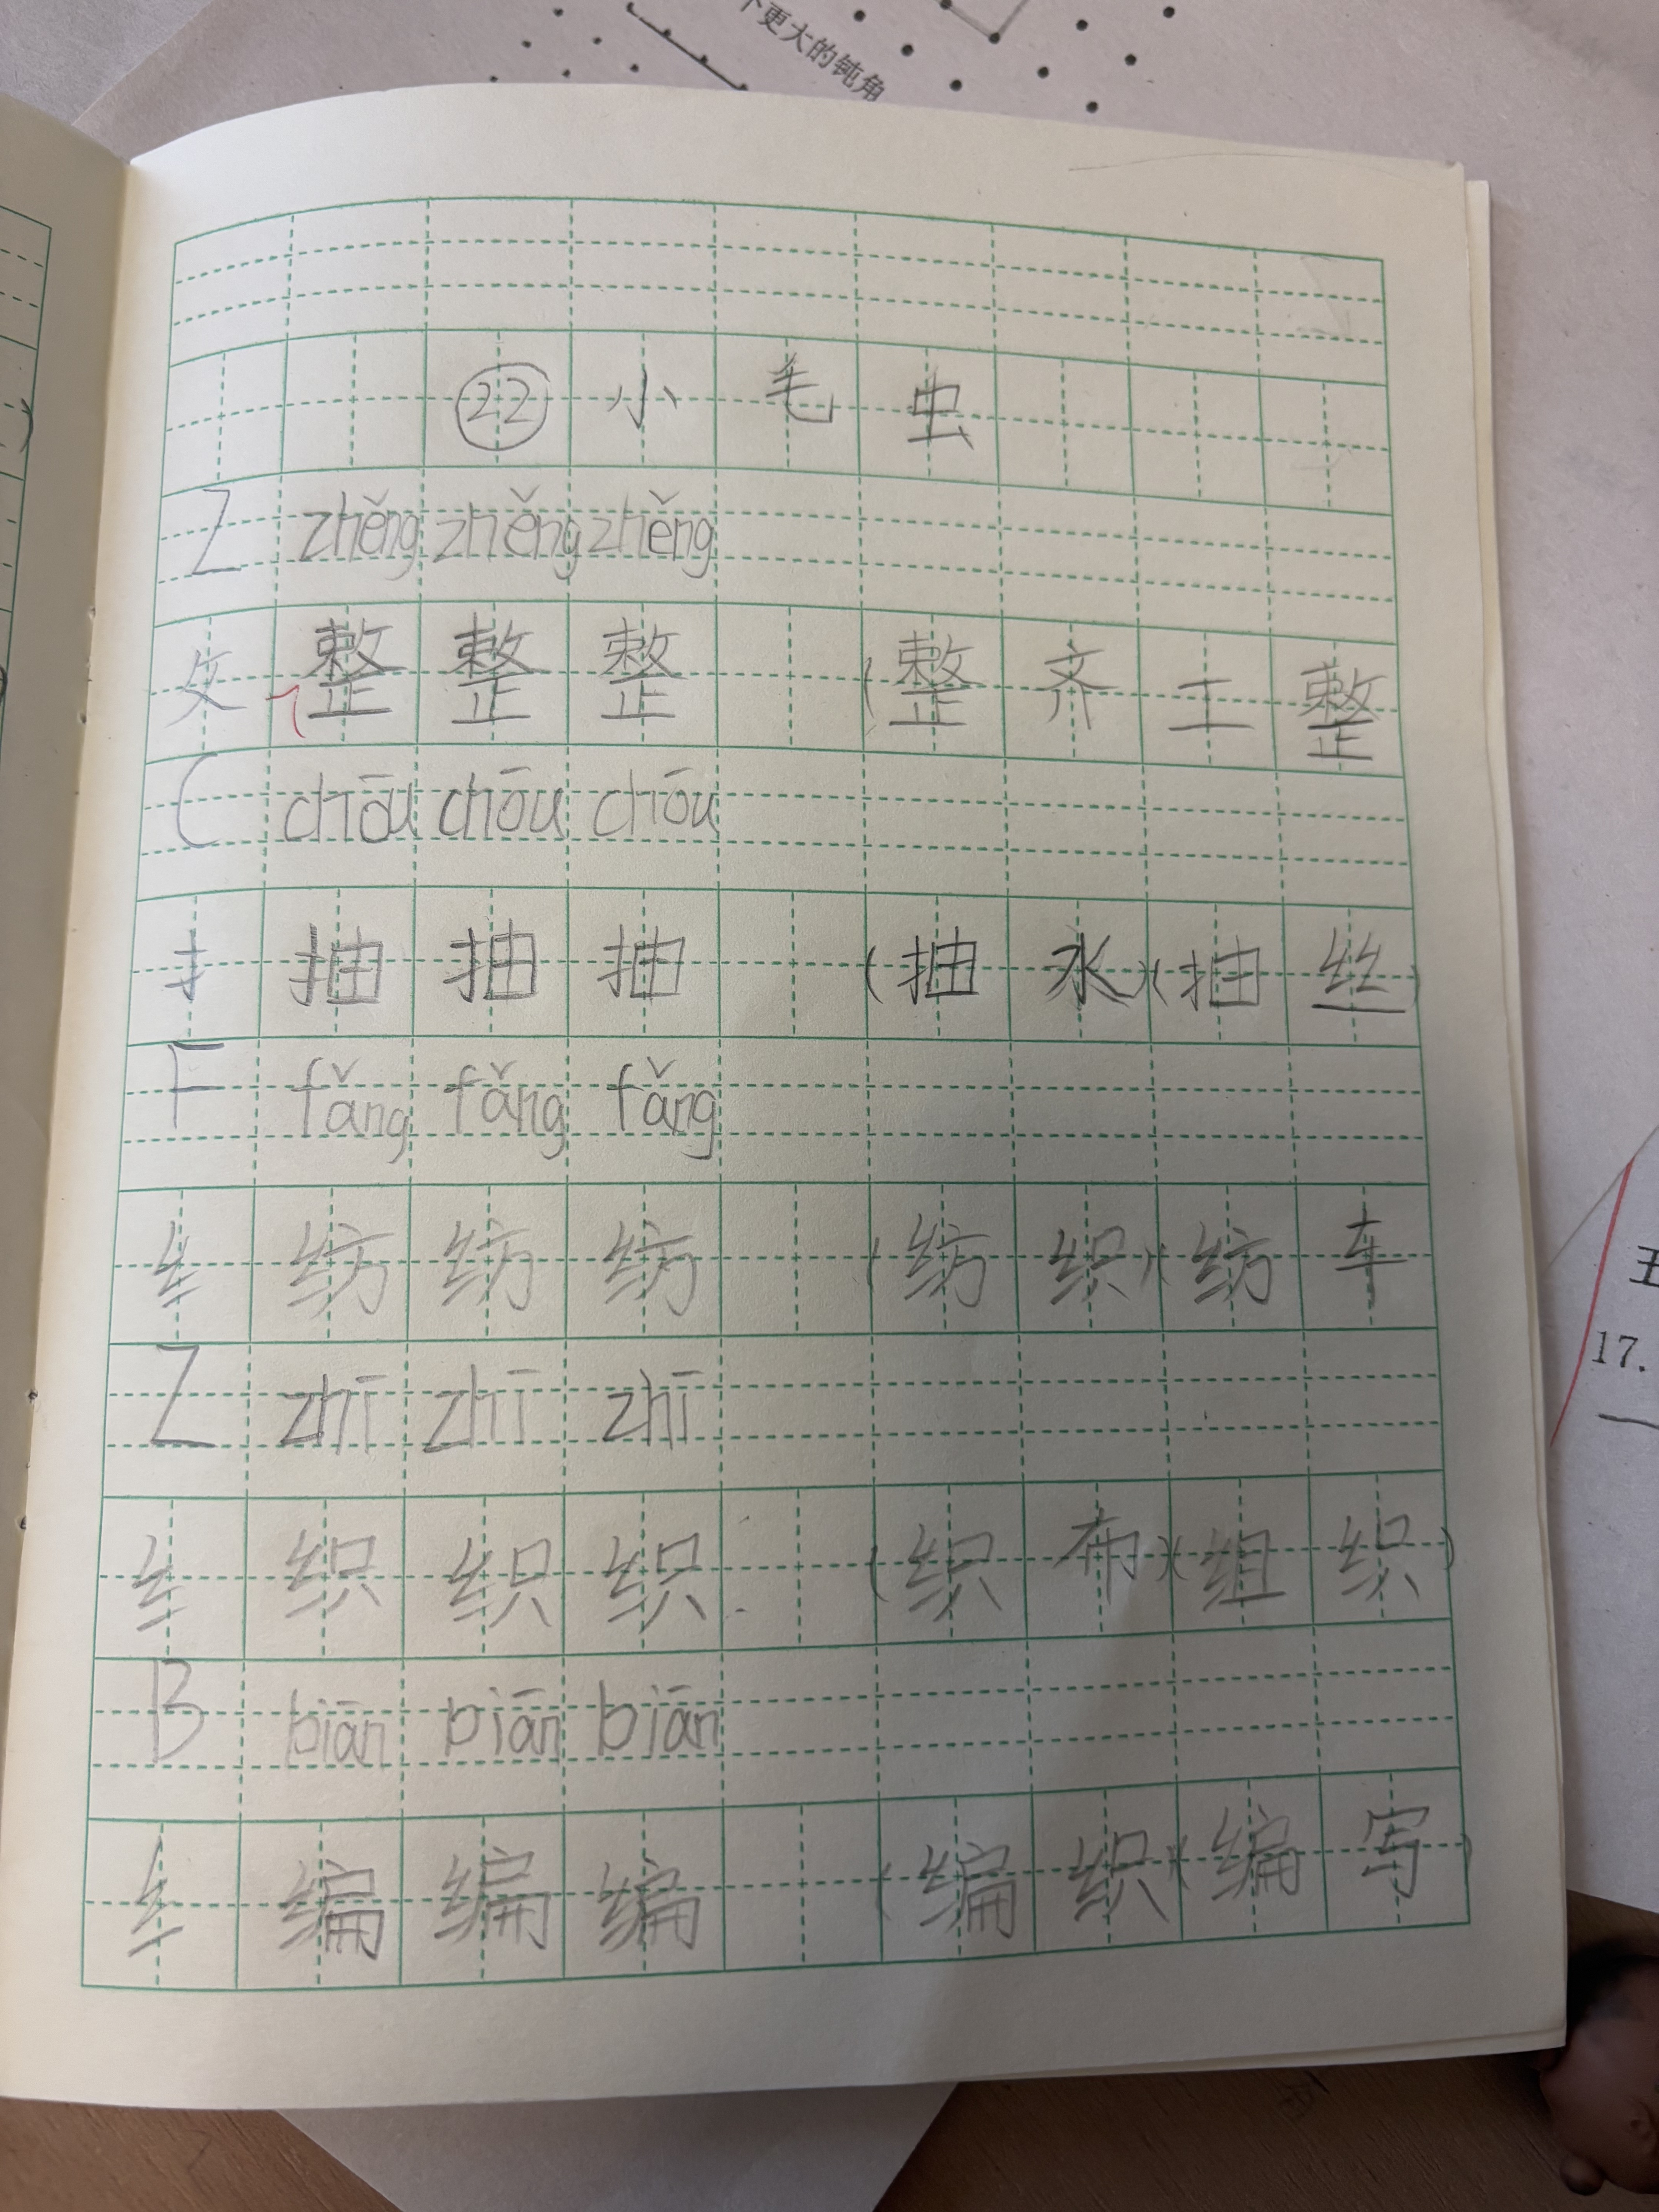 个更大的钝角
㉒ 小毛虫
Z zhěng zhěng zhěng
攵 整 整 整 (整齐 工整
C chōu chōu chōu
扌 抽 抽 抽 (抽水)(抽丝)
F fǎng fǎng fǎng
纟 纺 纺 纺 (纺织)(纺车
Z zhī zhī zhī
纟 织 织 织 (织布)(组织)
B biān biān biān
纟 编 编 编 (编织)(编写)
17.